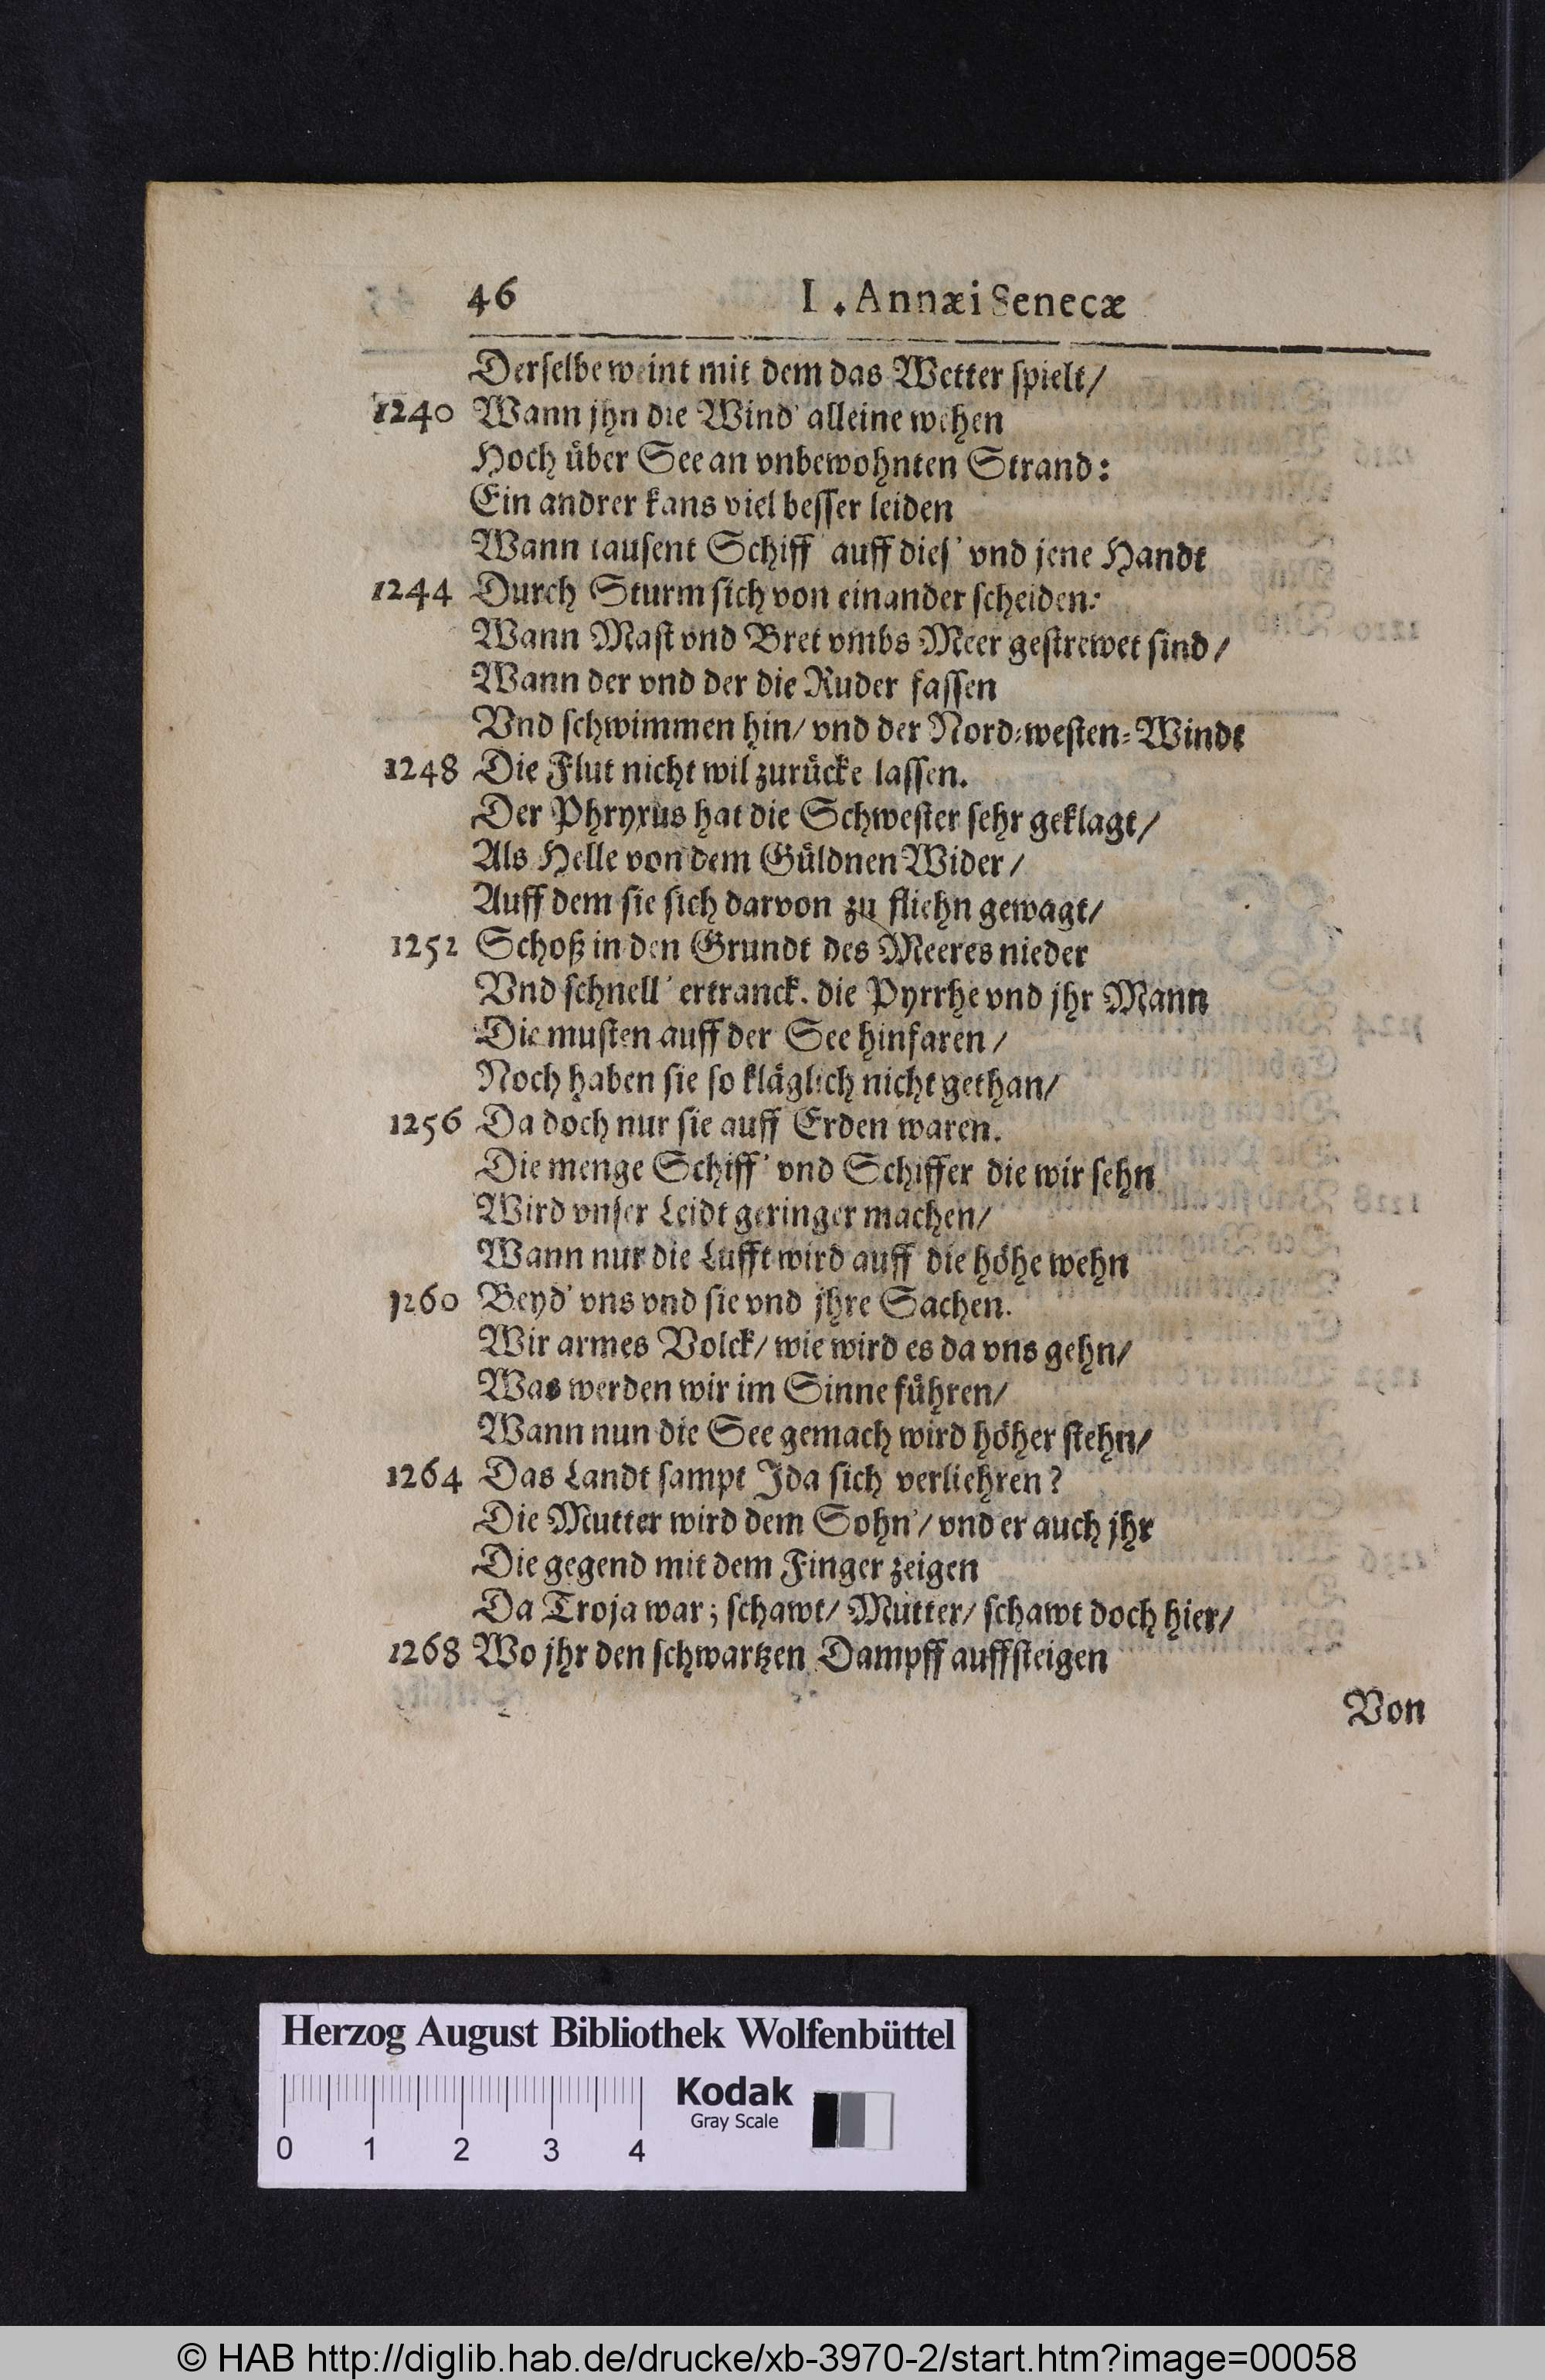 46 I. Annæi Senecæ
Derſelbe weint mit dem das Wetter ſpielt/
1240 Wann jhn die Wind' alleine wehen
Hoch uͤber See an vnbewohnten Strand:
Ein andrer kans viel beſſer leiden
Wann tauſent Schiff' auff dieſ' vnd jene Handt
1244 Durch Sturm ſich von einander ſcheiden:
Wann Maſt vnd Bret vmbs Meer geſtrewet ſind/
Wann der vnd der die Ruder faſſen
Vnd ſchwimmen hin/ vnd der Nord-weſten-Windt
1248 Die Flut nicht wil zuruͤcke laſſen.
Der Phryxus hat die Schweſter ſehr geklagt/
Als Helle von dem Guͤldnen Wider/
Auff dem ſie ſich darvon zu fliehn gewagt/
1252 Schoß in den Grundt des Meeres nieder
Vnd ſchnell' ertranck. die Pyrrhe vnd jhr Mann
Die muſten auff der See hinfaren/
Noch haben ſie ſo klaͤglich nicht gethan/
1256 Da doch nur ſie auff Erden waren.
Die menge Schiff' vnd Schiffer die wir ſehn
Wird vnſer Leidt geringer machen/
Wann nur die Lufft wird auff die hoͤhe wehn
1260 Beyd' vns vnd ſie vnd jhre Sachen.
Wir armes Volck/ wie wird es da vns gehn/
Was werden wir im Sinne fuͤhren/
Wann nun die See gemach wird hoͤher ſtehn/
1264 Das Landt ſampt Ida ſich verliehren?
Die Mutter wird dem Sohn'/ vnd er auch jhr
Die gegend mit dem Finger zeigen
Da Troja war; ſchawt/ Mutter/ ſchawt doch hier/
1268 Wo jhr den ſchwartzen Dampff auffſteigen
Von
Herzog August Bibliothek Wolfenbüttel
Kodak
Gray Scale
0 1 2 3 4
© HAB http://diglib.hab.de/drucke/xb-3970-2/start.htm?image=00058